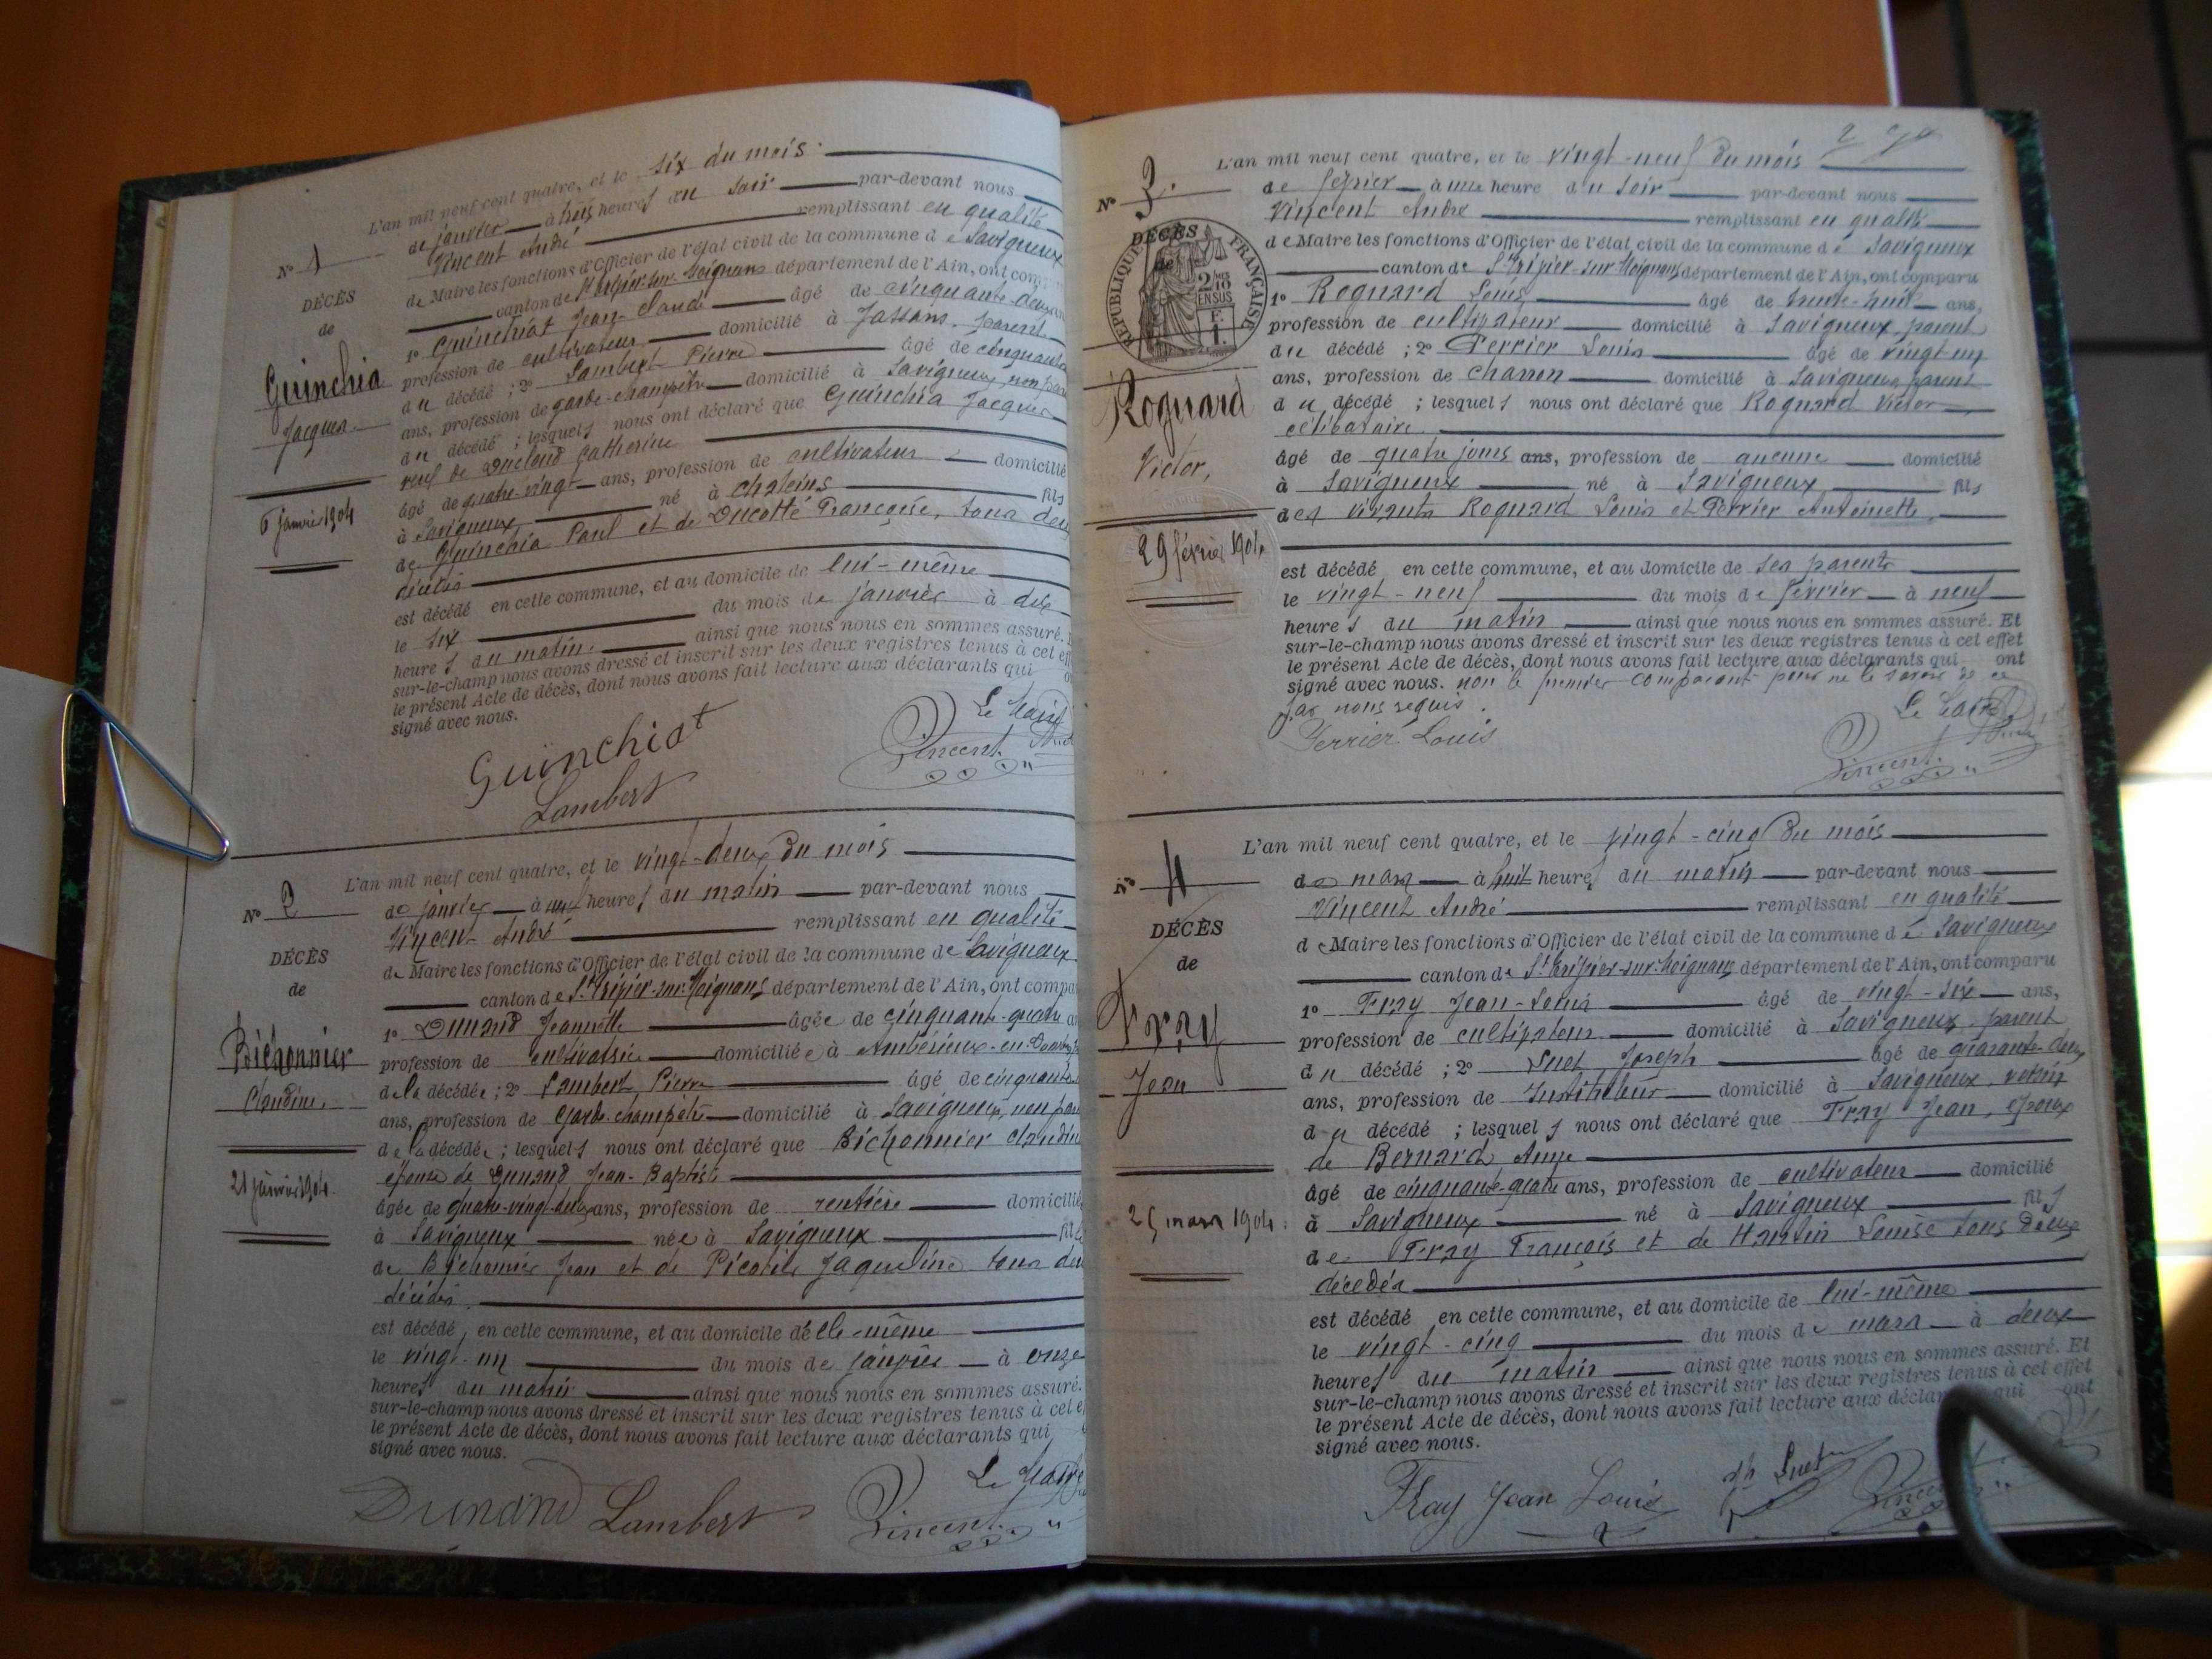 L'an mil neuf cent quatre, et le six du mois
de janvier à trois heures du soir par-devant nous
Vincent André remplissant en qualité
Nº 1
de Maire les fonctions d'Officier de l'état civil de la commune de Savigneux
DÉCÈS
canton de St Trivier-sur-Moignans département de l'Ain, ont comp
de
1º Guinchiat Jean-Claude âgé de cinquante-deux
Guinchia
profession de cultivateur domicilié à Jassans, parent
Jacques
du décédé ; 2º Lambert Pierre âgé de cinquante
ans, profession de garde-champêtre domicilié à Savigneux, non par
du décédé ; lesquels nous ont déclaré que Guinchia Jacques
veuf de Ducloud Catherine
âgé de quatre-vingt ans, profession de cultivateur domicilié
6 janvier 1904
à Savigneux, né à Chaleins fils
de Guinchia Paul et de Ducotté Françoise, tous deux
décédés
est décédé en cette commune, et au domicile de lui-même
le six du mois de janvier à dix
heures du matin. ainsi que nous nous en sommes assuré.
sur-le-champ nous avons dressé et inscrit sur les deux registres tenus à cet eff
le présent Acte de décès, dont nous avons fait lecture aux déclarants qui
signé avec nous.
Le Maire
Guinchiat
Vincent André
Lambert
L'an mil neuf cent quatre, et le vingt-deux du mois
Nº 2
de janvier à neuf heures du matin par-devant nous
Vincent André remplissant en qualité
DÉCÈS
de Maire les fonctions d'Officier de l'état civil de la commune de Savigneux
de
canton de St Trivier-sur-Moignans département de l'Ain, ont compa
1º Dunand Jeannette âgée de cinquante-quatre
Bichonnier
profession de cultivatrice domiciliée à Ambérieux-en-Dombes
Claudine,
de la décédée ; 2º Lambert Pierre âgé de cinquante
ans, profession de Garde-champêtre domicilié à Savigneux, non par
de la décédée ; lesquels nous ont déclaré que Bichonnier Claudine
épouse de Dunand Jean-Baptiste
21 janvier 1904.
âgée de quatre-vingt-deux ans, profession de rentière domicilié
à Savigneux née à Savigneux fille
de Bichonnier Jean et de Jaqueline tous deux
décédés.
est décédé, en cette commune, et au domicile d'elle-même
le vingt-un du mois de janvier à onze
heures du matin ainsi que nous nous en sommes assuré.
sur-le-champ nous avons dressé et inscrit sur les deux registres tenus à cet e
le présent Acte de décès, dont nous avons fait lecture aux déclarants qui
signé avec nous.
Le Maire
Dunand Lambert Vincent
2
L'an mil neuf cent quatre, et le vingt-neuf du mois
Nº 3.
de février à une heure du soir par-devant nous
Vincent André remplissant en qualité
DÉCÈS
de
RÉPUBLIQUE FRANÇAISE
2/10 EN SUS
F. 1.
de Maire les fonctions d'Officier de l'état civil de la commune de Savigneux
canton de St Trivier-sur-Moignans département de l'Ain, ont comparu
1º Rognard Louis âgé de trente-huit ans,
profession de cultivateur domicilié à Savigneux, parent
du décédé ; 2º Perrier Louis âgé de vingt-un
ans, profession de charron domicilié à Savigneux, parent
Rognard
du décédé ; lesquels nous ont déclaré que Rognard Victor
célibataire.
Victor,
âgé de quatre jours ans, profession de aucune domicilié
à Savigneux né à Savigneux fils
des vivants Rognard Louis et Perrier Antoinette.
29 février 1904
est décédé en cette commune, et au domicile de ses parents
le vingt-neuf du mois de février à neuf
heures du matin ainsi que nous nous en sommes assuré. Et
sur-le-champ nous avons dressé et inscrit sur les deux registres tenus à cet effet
le présent Acte de décès, dont nous avons fait lecture aux déclarants qui ont
signé avec nous. non le premier comparant pour ne le savoir de ce
par nous requis.
Le Maire
Perrier Louis
Vincent André
L'an mil neuf cent quatre, et le vingt-cinq du mois
Nº 4
de mars à huit heures du matin par-devant nous
Vincent André remplissant en qualité
DÉCÈS
de Maire les fonctions d'Officier de l'état civil de la commune de Savigneux
de
canton de St Trivier-sur-Moignans département de l'Ain, ont comparu
1º Fray Jean-Louis âgé de vingt-six ans,
Fray
profession de cultivateur domicilié à Savigneux, parent
Jean
du décédé ; 2º Suet Joseph âgé de quarante-deux
ans, profession de Instituteur domicilié à Savigneux, voisin
du décédé ; lesquels nous ont déclaré que Fray Jean, époux
de Bernard Anne
âgé de cinquante-quatre ans, profession de cultivateur domicilié
25 mars 1904.
à Savigneux né à Savigneux fils
de Fray François et de Louise tous deux
décédés
est décédé en cette commune, et au domicile de lui-même
le vingt-cinq du mois de mars à deux
heures du matin ainsi que nous nous en sommes assuré. Et
sur-le-champ nous avons dressé et inscrit sur les deux registres tenus à cet effet
le présent Acte de décès, dont nous avons fait lecture aux déclarants qui ont
signé avec nous.
Fray Jean Louis Jh Suet Vincent